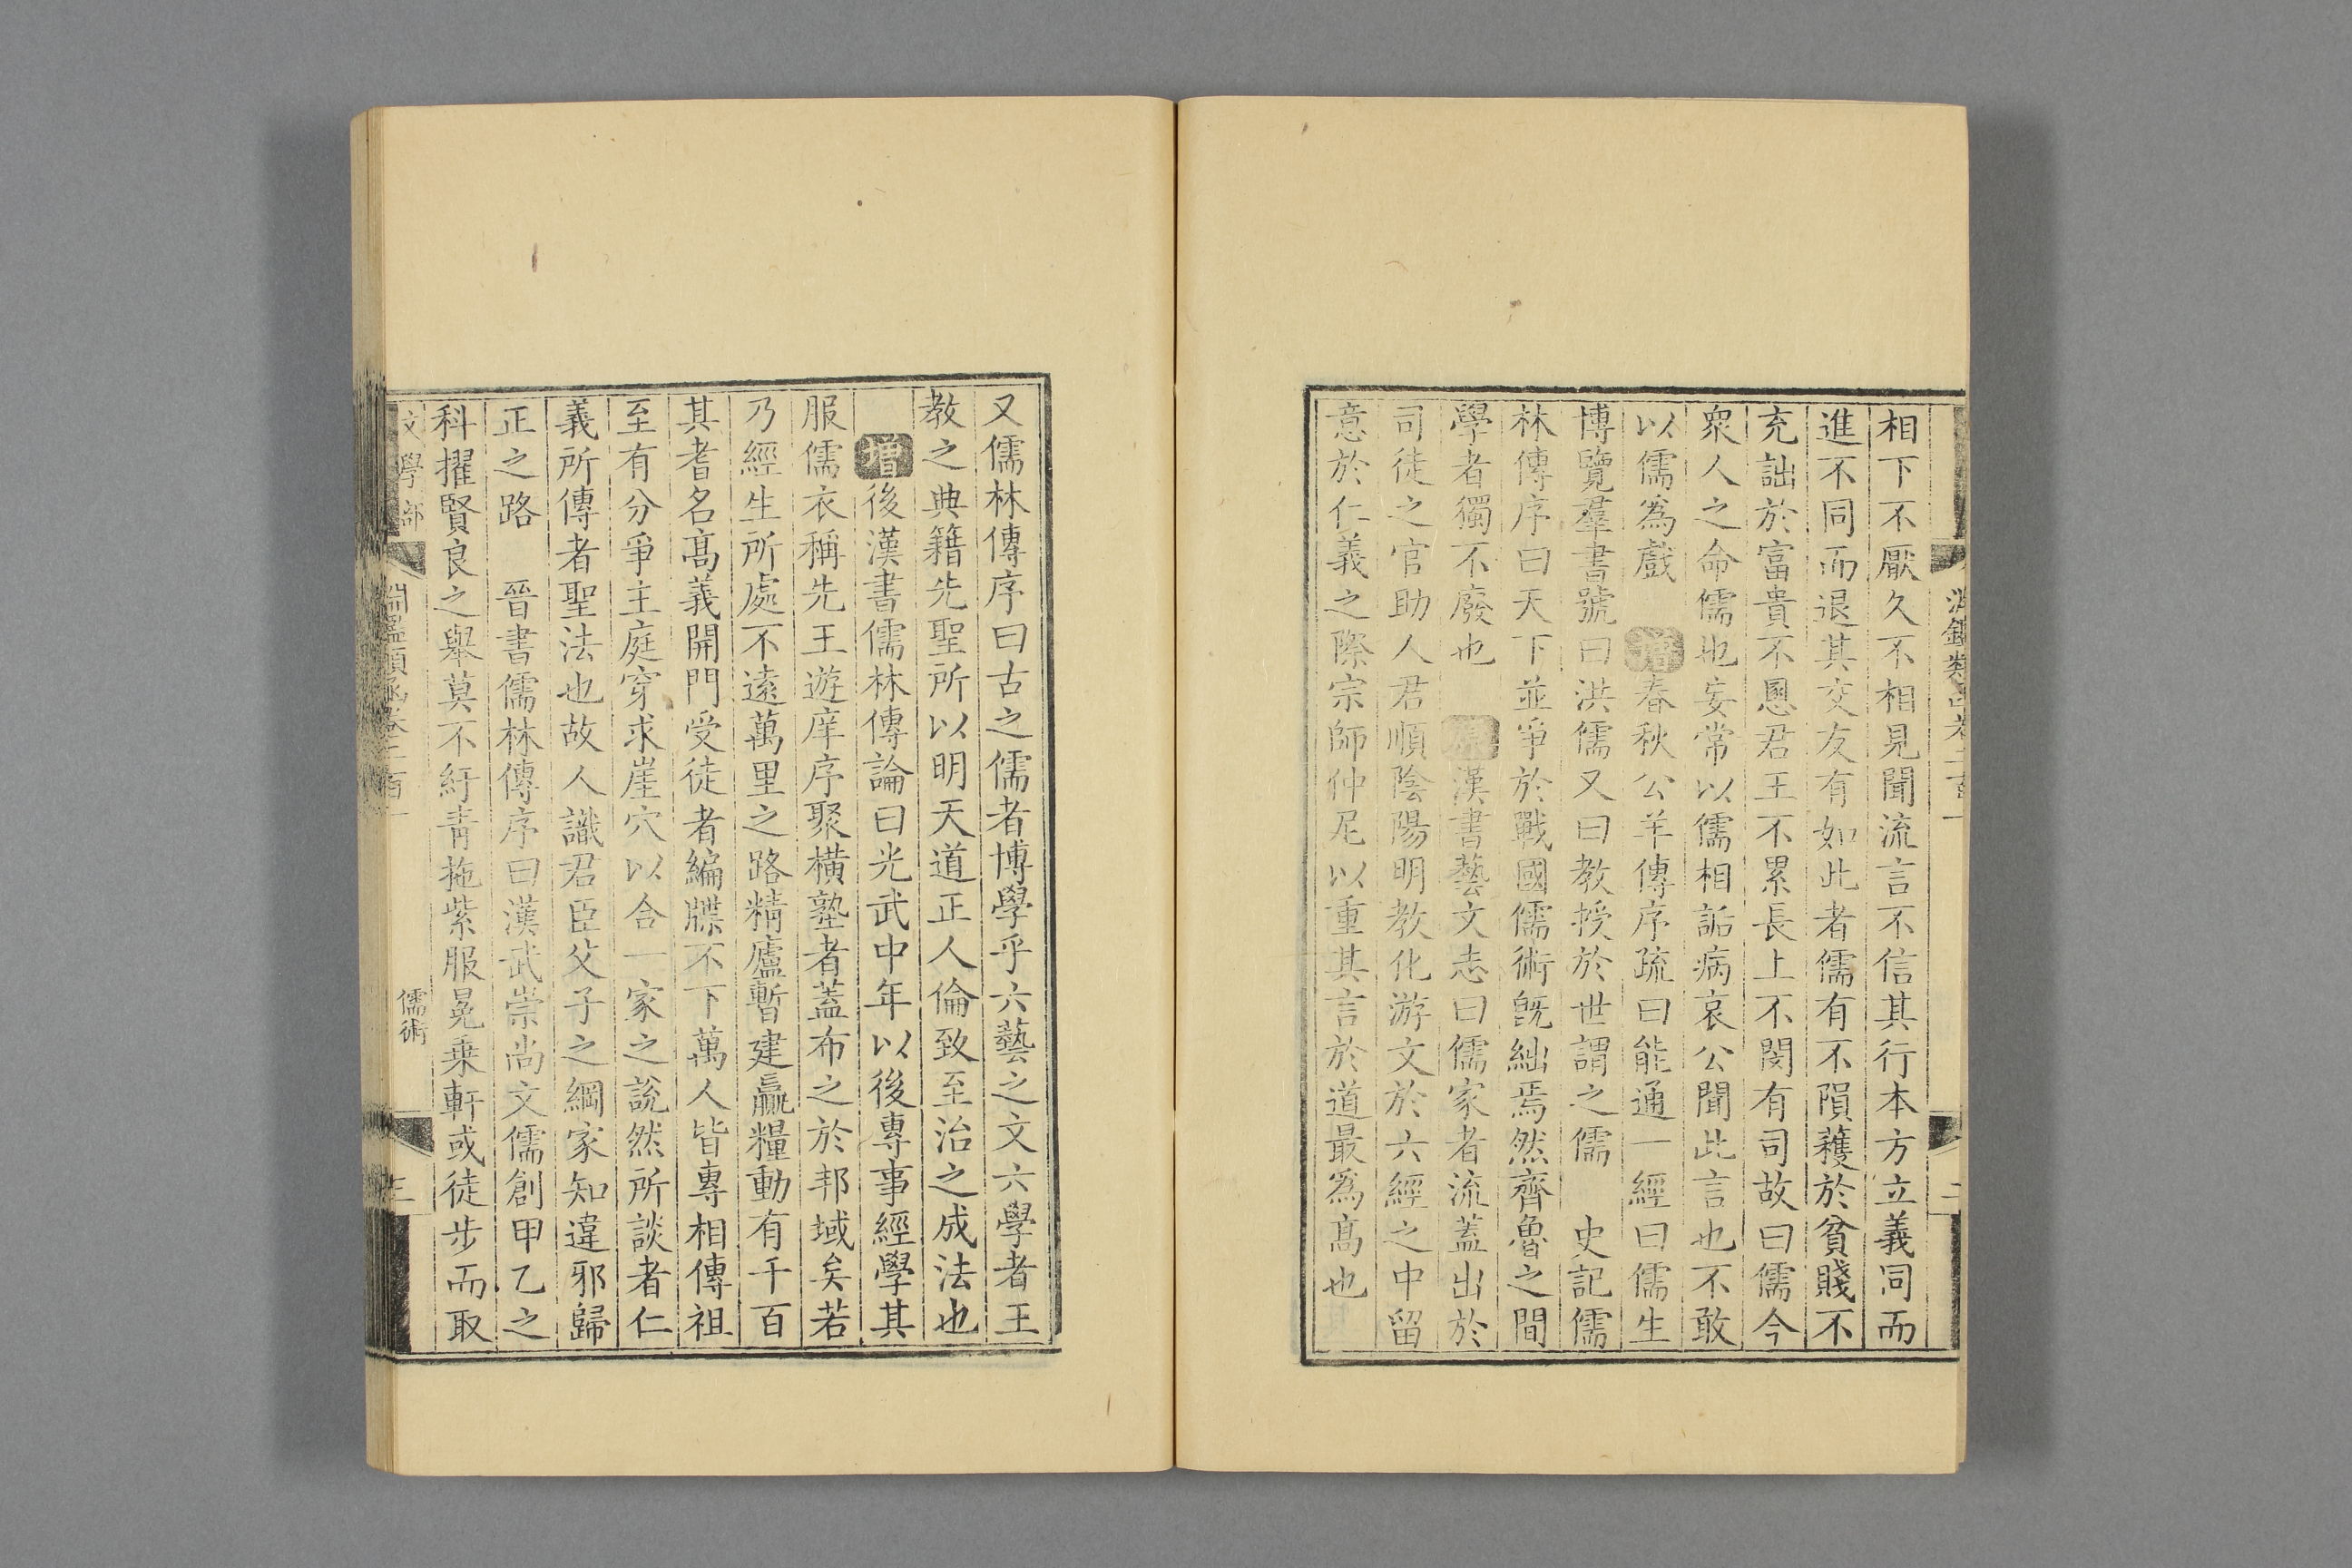 相下不厭久不相見聞流言不信其行本方立義同而
進不同而退其交友有如此者儒有不隕穫於貧賤不
充詘於富貴不慁君王不累長上不閔有司故曰儒今
衆人之命儒也妄常以儒相詬病哀公聞此言也不敢
以儒爲戲 增春秋公羊傳序疏曰能通一經曰儒生
博覽羣書號曰洪儒又曰教授於世謂之儒 史記儒
林傳序曰天下並爭於戰國儒術既絀焉然齊魯之間
學者獨不廢也 原漢書藝文志曰儒家者流蓋出於
司徒之官助人君順陰陽明教化游文於六經之中留
意於仁義之際宗師仲尼以重其言於道最爲高也
又儒林傳序曰古之儒者博學乎六藝之文六學者王
教之典籍先聖所以明天道正人倫致至治之成法也
增後漢書儒林傳論曰光武中年以後專事經學其
服儒衣稱先王遊庠序聚橫塾者蓋布之於邦域矣若
乃經生所處不遠萬里之路精廬暫建贏糧動有千百
其耆名高義開門受徒者編牒不下萬人皆專相傳祖
至有分爭主庭穿求崖穴以合一家之說然所談者仁
義所傳者聖法也故人識君臣父子之綱家知違邪歸
正之路 晉書儒林傳序曰漢武崇尚文儒創甲乙之
科擢賢良之舉莫不紆青拖紫服冕乘軒或徒步而取
文學部
淵鑑類函卷二百一
儒術
三